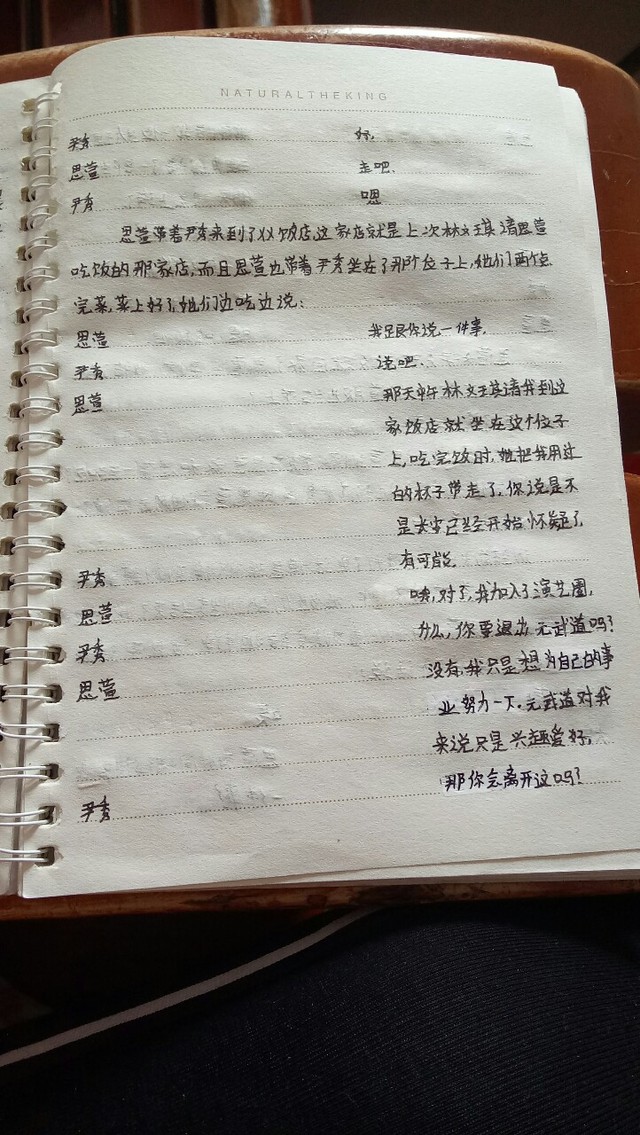 NATURALTHEKING
尹秀 好,
思萱 走吧.
尹秀 嗯
思萱带着尹秀来到了饭店,这家店就是上次林文琪请思萱
吃饭的那家店,而且思萱也带着尹秀坐在了那个位子上,她们两个点
完菜,菜上好了,她们边吃边说:
思萱 我跟你说一件事,
尹秀 说吧.
思萱 那天中午林文琪请我到这
家饭店就坐在这个位子
上,吃完饭时,她把我用过
的杯子带走了,你说是不
是长安已经开始怀疑了,
尹秀 有可能,
思萱 唉,对了,我加入了演艺圈,
尹秀 什么,你要退出元武道吗?
思萱 没有,我只是想为自己的事
业努力一下.元武道对我
来说只是兴趣爱好,
尹秀 那你会离开这吗?